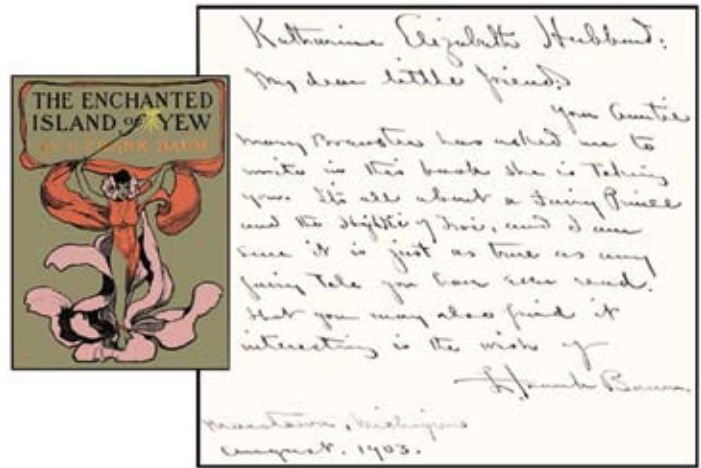 THE ENCHANTED
ISLAND OF YEW
BY L. FRANK BAUM
Katharine Elizabeth Hubbard:
My dear little friend:
Your Auntie
Mary Brewster has asked me to
write in this book she is taking
you. It's all about a Fairy Prince
and the of and I am
sure it is just as true as any
fairy tale you have ever read.
that you may also find it
interesting is the wish of
L. Frank Baum.
Macatawa, Michigan
August. 1903.